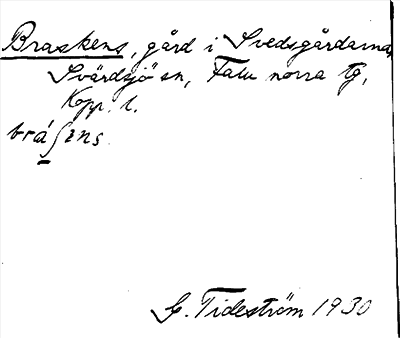 Braskens, gård i Svedsgårdarna,
Svärdsjö sn, Falu norra tg,
Kopp. l.
brá̱ʃens
G. Tideström 1930